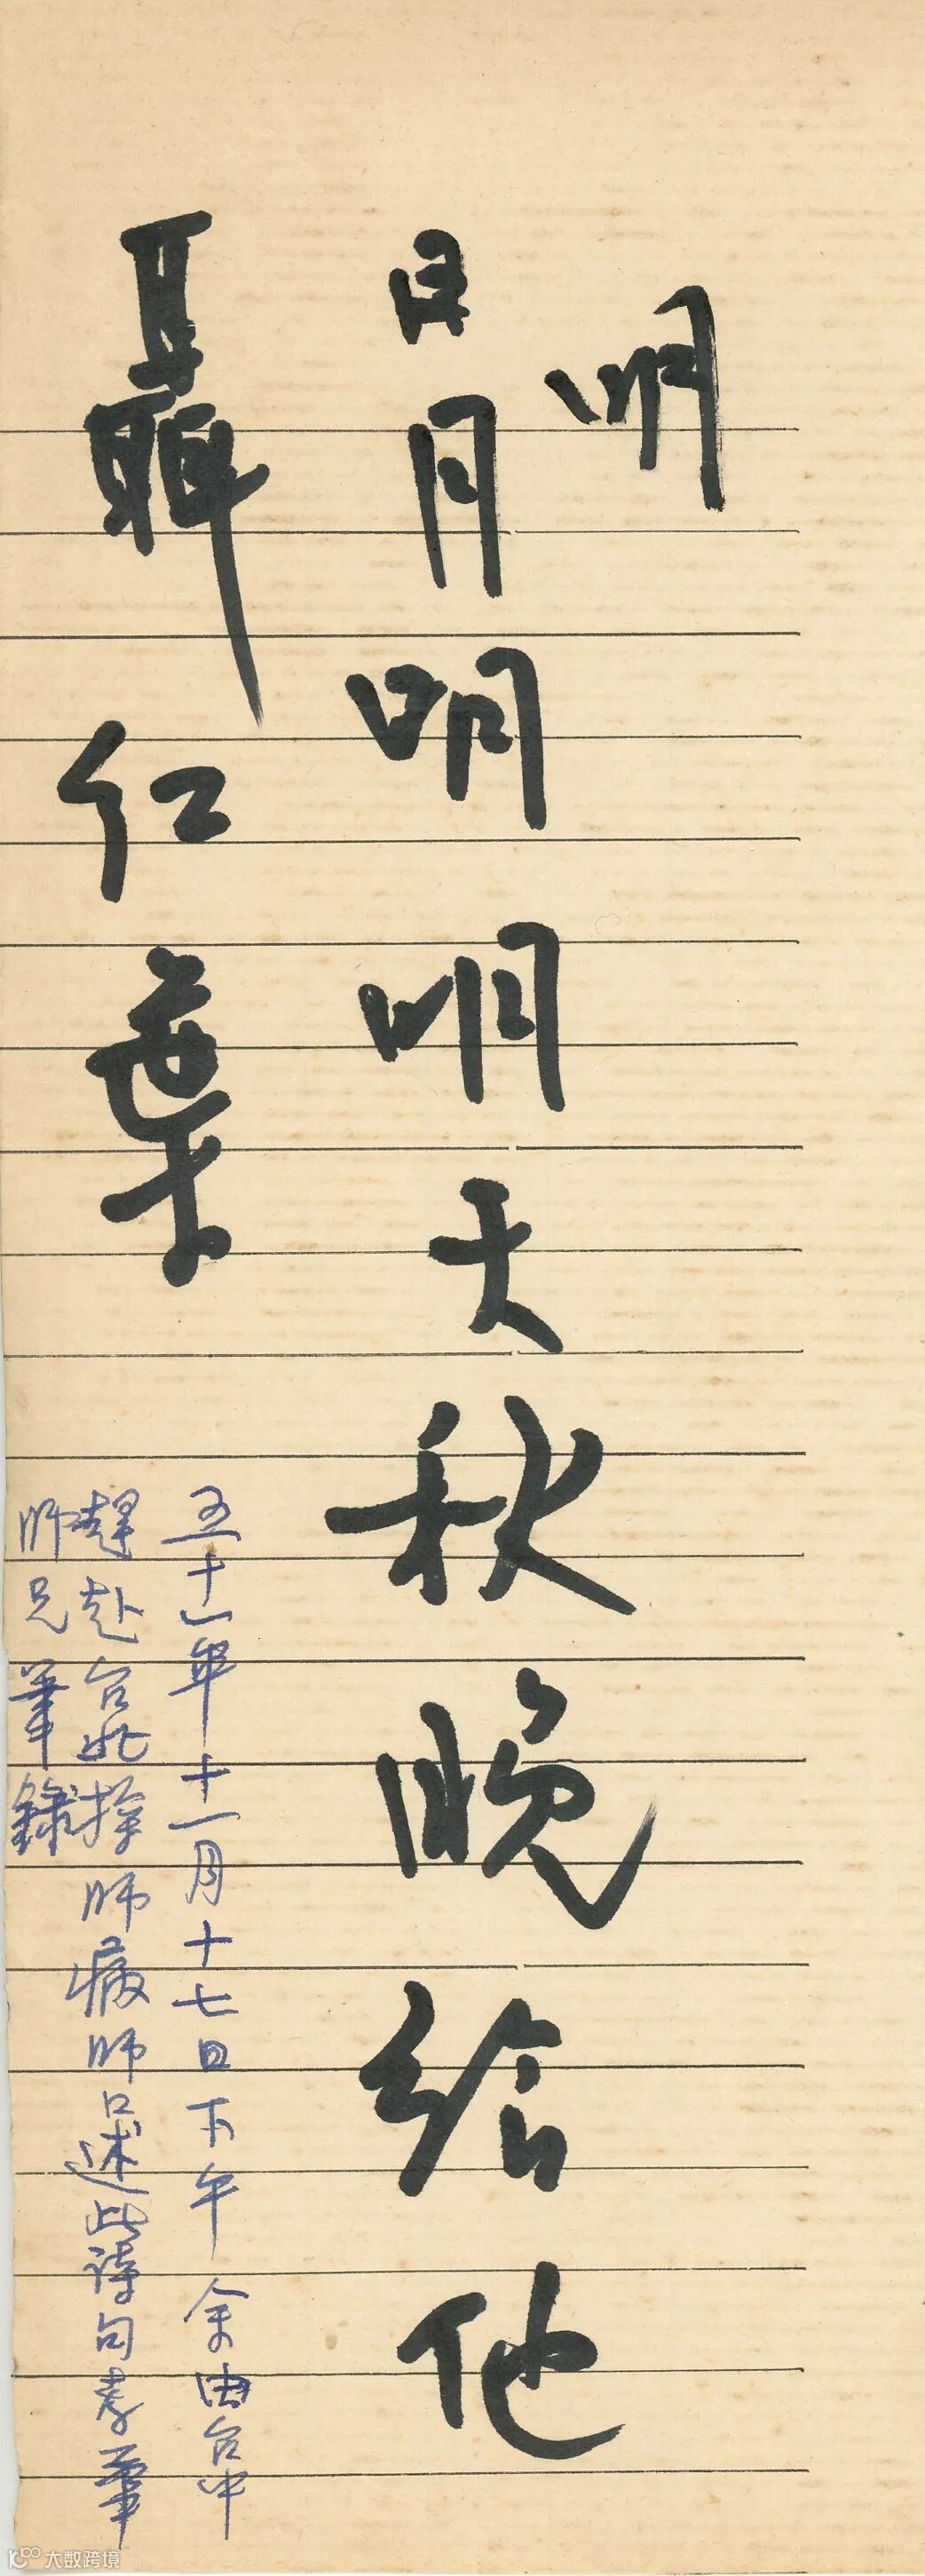 明
日月明明大秋晚給他
聶仁
五十一年十一月十七日下午余由台中
趕赴台北探師病師口述此詩句孝華
師兄筆錄
大数跨境